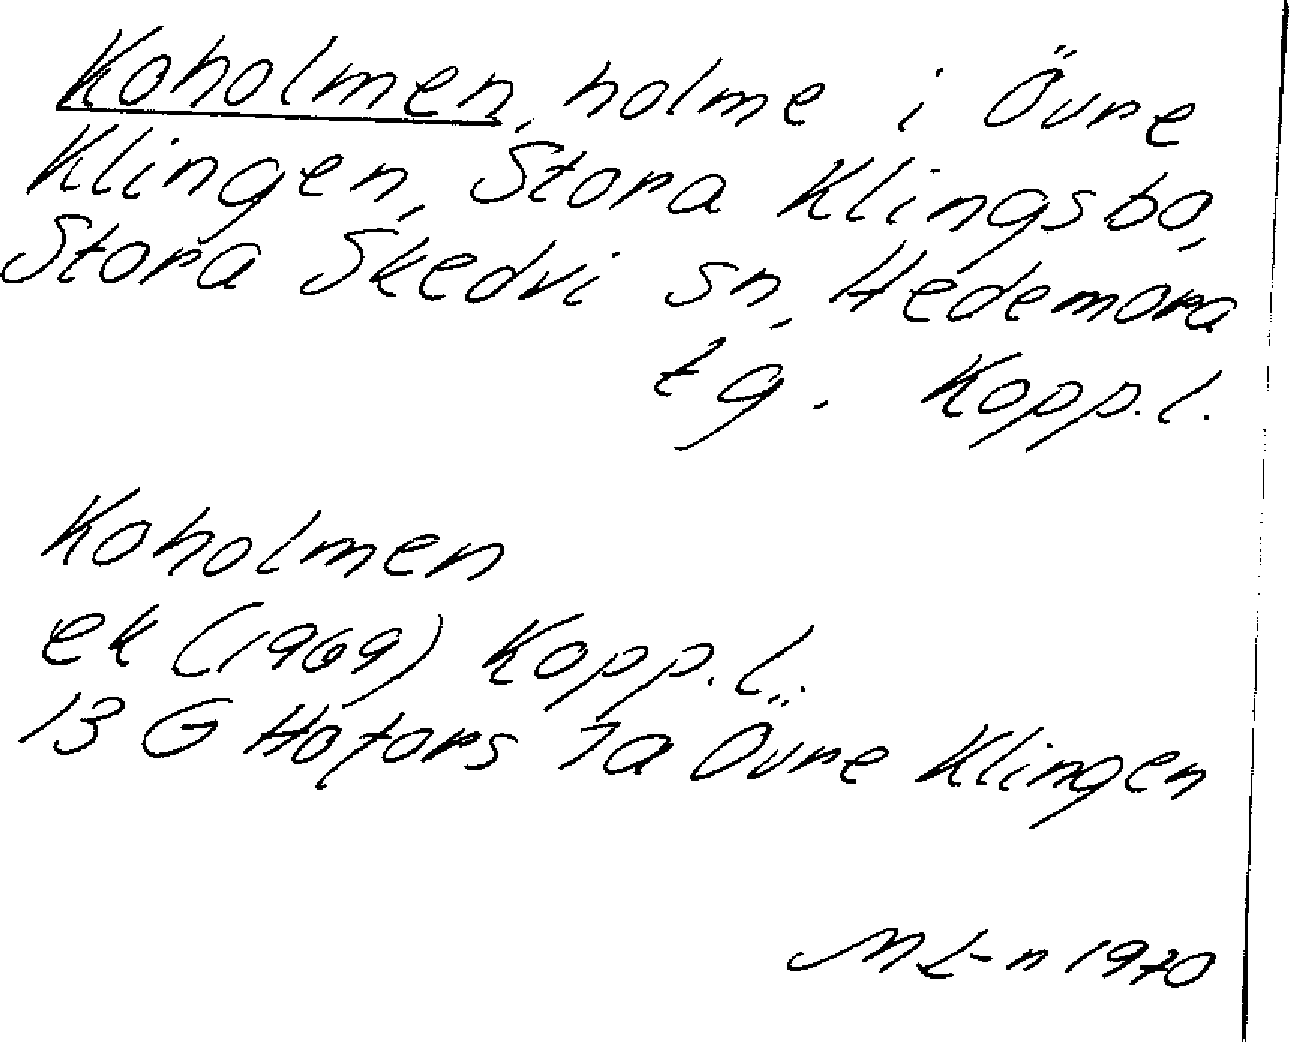 Koholmen, holme i Övre
Klingen, Stora Klingsbo,
Stora Skedvi sn, Hedemora
tg. Kopp.l.
Koholmen
ek (1969) Kopp.l.
13 G Hofors 7a Övre Klingen
M L-n 1970